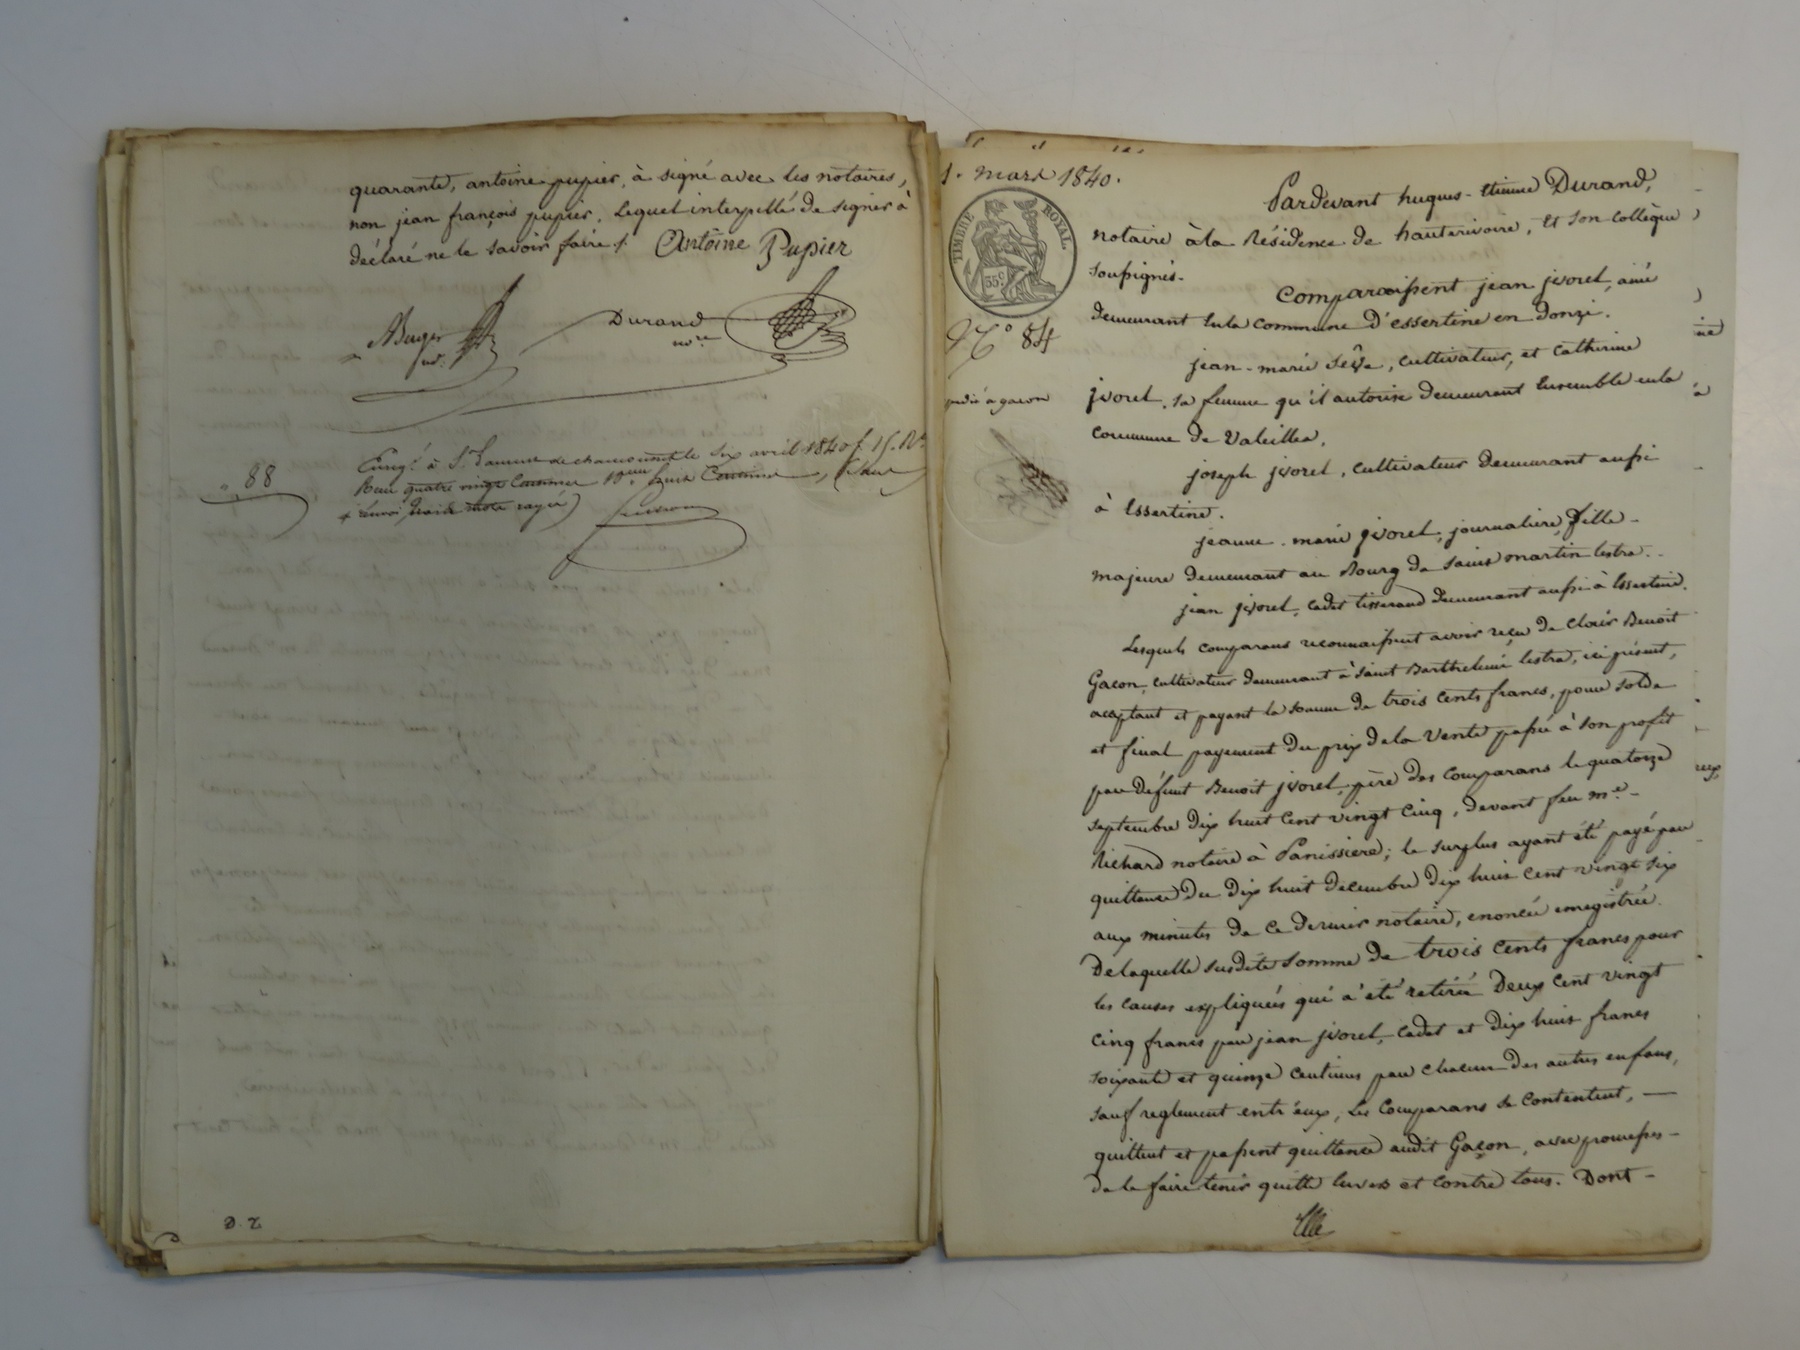 quarante, antoine pupier, à signé avec les notaires,
non jean françois pupier, lequel interpellé de signer à
déclaré ne le savoir faire ./.
Antoine Pupier
Durand
nore
Enregé à St Laurent de chamousset le six avril 1840 f. 15. Ro
quatre vingt centimes
renvoi
rayé)
88
D. Z
1. mars 1840.
TIMBRE ROYAL
35 c.
No 84
expédié à gacon
Pardevant hugues-étienne Durand,
notaire à la Résidence de hauterivoire, et son collègue
soussignés.
Comparaissent jean jvorel, ainé
demeurant sur la commune d'essertine en donzi.
jean-marie Sêve, cultivateur, et Catherine
jvorel, sa femme qu'il autorise demeurant ensemble en la
commune de Valeilles.
joseph jvorel, cultivateur demeurant aussi
à Essertine.
jeanne-marie jvorel, journalière, fille
majeure demeurant au Bourg de saint martin lestra.
jean jvorel, cadet tisserand demeurant aussi à Essertine.
Lesquels comparans reconnaissent avoir reçu de clair Benoit
Gacon, cultivateur demeurant à saint Barthelemi lestra, ici présent,
acceptant et payant la somme de trois cents francs, pour solde
et final payement du prix de la vente passée à son profit
par défunt Benoit jvorel, père des comparans le quatorze
septembre dix huit cent vingt cinq, devant feu me
Richard notaire à Panissiere; le surplus ayant été payé par
quittance du dix huit decembre dix huit cent vingt six
aux minutes de ce dernier notaire, enoncée enregistrée.
De laquelle susdite somme de trois cents francs pour
les causes expliquées qui a été retirée Deux cent vingt
cinq francs par jean jvorel, cadet et dix huit francs
soixante et quinze centimes par chacun des autres enfans,
sauf reglement entr'eux, les Comparans se contentent, —
quittent et passent quittance audit Gaçon, avec promesses
de le faire tenir quitte envers et contre tous. Dont